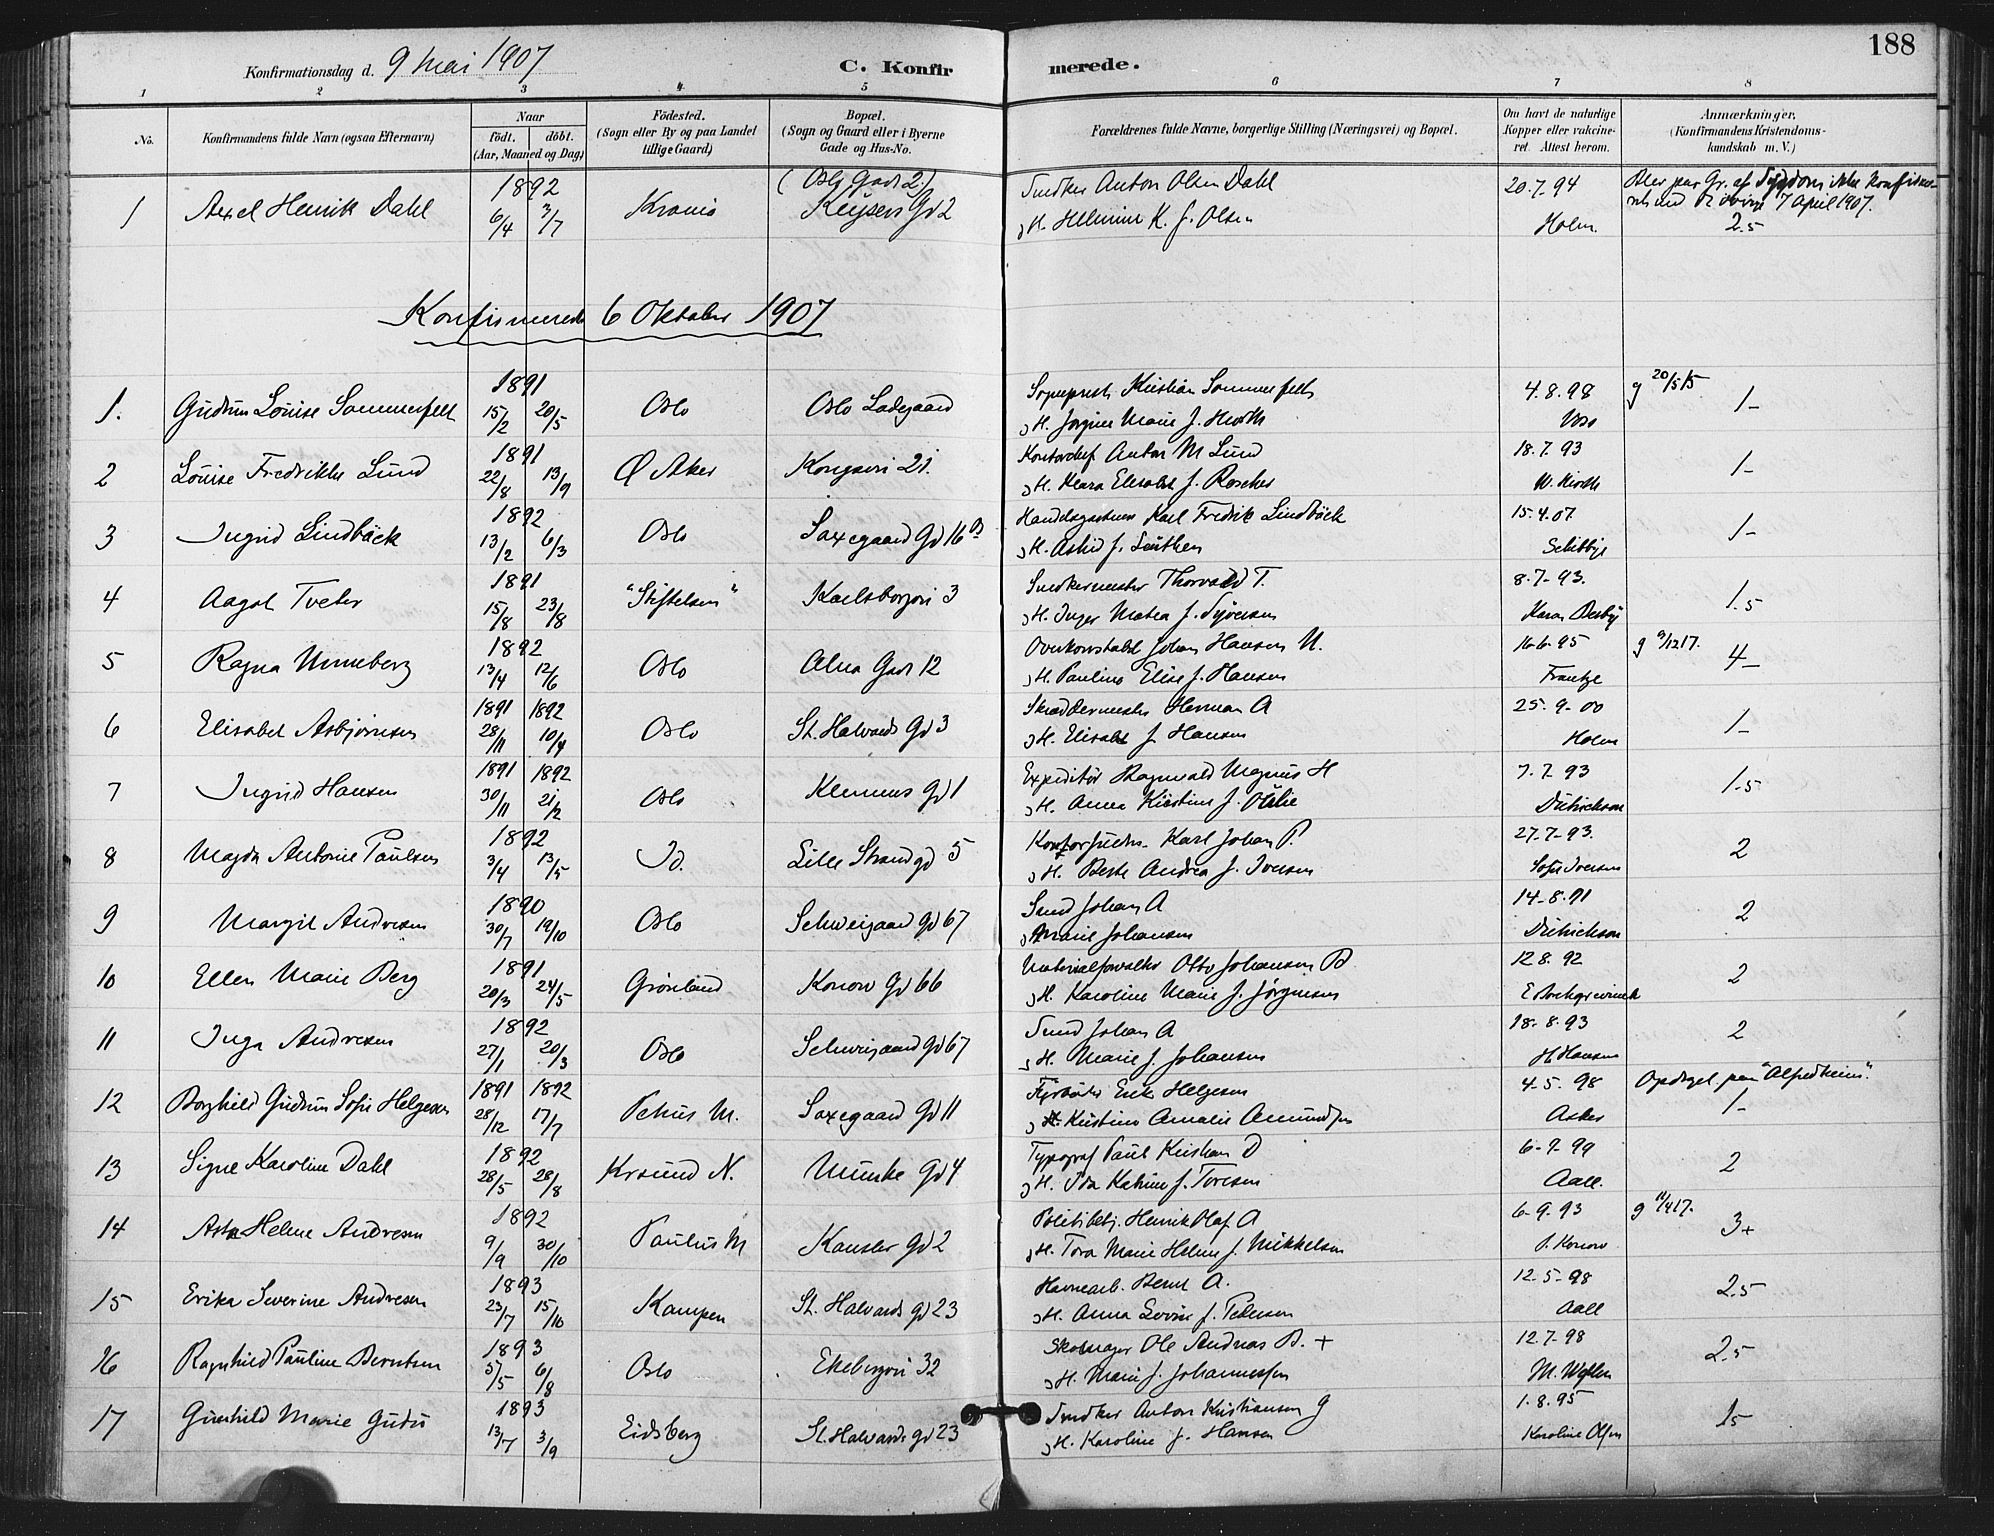 188
Konfirmationsdag d. 9 Mai 1907 C. Konfirmerede.
1 2 3 4 5 6 7 8
No. Konfirmandens fulde Navn (ogsaa Efternavn) Naar födt. döbt. (Aar, Maaned og Dag) Födested. (Sogn eller By og paa Landet tillige Gaard) Bopæl. (Sogn og Gaard eller i Byerne Gade og Hus-No. Forældrenes fulde Navne, borgerlige Stilling (Næringsvei) og Bopæl. Om havt de naturlige Kopper eller vakcineret. Attest herom. Anmærkninger. (Konfirmandens Kristendomskundskab m. V.)
1892 (Oslo Gade 2.) Snedker Anton Olsen Dahl 20.7.94 Blev paa Gr. af Sygdom ikke Konfirme-
1 Axel Henrik Dahl 6/4 3/7 Krania Keysers Gd 2 H. K. f. Olsen Holm. 7 April 1907.
2.5
Konfirmerede 6 Oktober 1907
1891 Sogneprest Kristian Sommerfelt 4.8.98 g 20/5 15
1. Gudrun Louise Sommerfelt 15/2 20/5 Oslo Oslo Ladegaard H. Jørgine Marie f. Voss 1-
1891 Kontorchef Anton M Lund 18.7.93
2 Louise Fredrikke Lund 22/8 13/9 Ø Aker Kongsvei 21. H. Klara Elisabet f. 1-
1892 Karl Fredrik Lindbäck 15.4.07.
3 Ingrid Lindbäck 13/2 6/3 Oslo Saxegaard Gd 16 H. f. Schibbye 1-
1891 Snedkermester Thorvald T. 8.7-93.
4 Aagot Tveter 15/8 23/8 "Stiftelsen" Karlsborgvei 3 H. Inger Matea f. Syversen Karen 1.5
1892 Overkonstabel Johan Hansen U. 16.6.95 g 9/12 17.
5 Ragna Unneberg 13/4 12/6 Oslo Alna Gade 12 H. Pauline Elise f. Hansen Frantze 4-
1891 1892 Skræddermester Herman A 25-9-00
6 Elisabet Asbjørnsen 28/11 10/4 Oslo St. Halvards Gd 3 H. Elisabet f Hansen Holm 1-
1891 1892 Expeditør Ragnvald Magnus H 7.7 93
7 Ingrid Hansen 30/11 21/2 Oslo Klemens Gd 1 H. Anna Kirstine f. Dietrichson 1-5
1892 Kontorfuldm. Karl Johan P. 27-7-93.
8 Magda Antonie Paulsen 3/4 13/5 Id. Lille Strandgd 5 H. Andrea f. Iversen Sofie Iversen 2
1890 Smed Johan A 14-8.91
9 Margit Andresen 30/7 19/10 Oslo Schweigaard Gd 67 Marie Johansen Dietrichson 2
1891 Materialforvalter Otto Johansen B 12 8. 92
10 Ellen Marie Berg 20/3 24/5 Grønland Konow Gd 66 H. Karoline Marie f. Jørgensen E Borchgrevink 2
1892 Smed Johan A 18-8.93
11 Inga Andresen 27/1 20/3 Oslo Schweigaard Gd 67 H. Marie f Johansen H Hansen 2
1891 1892 Fyrbøder Erik Helgesen 4-5.98 Opdraget paa "Alfredheim".
12 Borghild Gudrun Sofie Helgesen 28/12 17/7 Petrus M. Saxegaard Gd 11 Kristine Amalie Amundsen Asker 1-
1892 Typograf Paul Kristian D 6-7-99
13 Signe Karoline Dahl 28/5 28/8 Krsund N. Munke Gd 4 H. Ida Katrine f. Toresen Aall. 2
1892 Politibetj. Henrik Olaf A 6-9.93 g 11/4 17.
14 Asta Helene Andresen 9/9 30/10 Paulus M Kansler Gd 2 H. Tora Marie Helene f. Mikkelsen P. Konow 3+
1893 Havnearb. Bernt A. 12-5-98
15 Erika Severine Andresen 23/7 15/10 Kampen St. Halvards gd 23 H. Anna Lovise f. Pedersen Aall 2.5
1893 Skomager Ole Andreas B. + 12.7-98
16 Ragnhild Pauline Berntsen 5/5 6/8 Oslo Ekebergvei 32 H. Marie f. Johannessen M. 2.5
1893 Snedker Anton Kristiansen G 1.8.95
17 Gunhild Marie Gudu 13/7 3/9 Eidsberg St. Halvards gd 23 H. Karoline f. Hansen Karoline Olsen 1.5